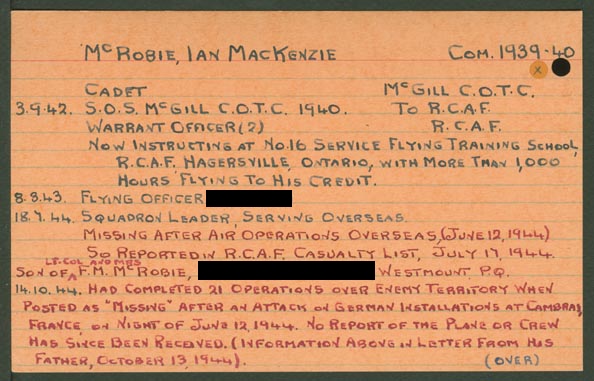 McROBIE, IAN MACKENZIE COM. 1939-40
X
CADET McGILL C.O.T.C.
3.9.42. S.O.S. McGILL C.O.T.C. 1940. TO R.C.A.F.
WARRANT OFFICER (2) R.C.A.F.
NOW INSTRUCTING AT NO.16 SERVICE FLYING TRAINING SCHOOL,
R.C.A.F. HAGERSVILLE, ONTARIO, WITH MORE THAN 1,000
HOURS FLYING TO HIS CREDIT.
8.3.43. FLYING OFFICER
18.7.44. SQUADRON LEADER, SERVING OVERSEAS.
MISSING AFTER AIR OPERATIONS OVERSEAS, (JUNE 12, 1944)
SO REPORTED IN R.C.A.F. CASUALTY LIST, JULY 17, 1944.
LT. COL. AND MRS
SON OF F.M. McROBIE, WESTMOUNT, P.Q.
14.10.44. HAD COMPLETED 21 OPERATIONS OVER ENEMY TERRITORY WHEN
POSTED AS "MISSING" AFTER AN ATTACK ON GERMAN INSTALLATIONS AT CAMBRAI,
FRANCE, ON NIGHT OF JUNE 12, 1944. NO REPORT OF THE PLANE OR CREW
HAS SINCE BEEN RECEIVED. (INFORMATION ABOVE IN LETTER FROM HIS
FATHER, OCTOBER 13, 1944). (OVER)